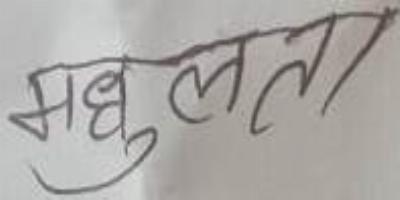 मधुलता